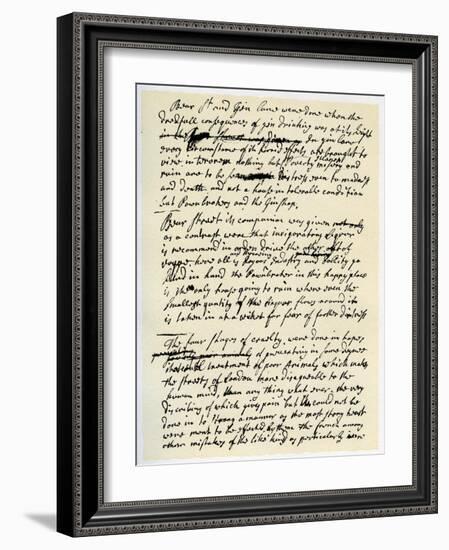 Bear St and Gin Lane were done when the
dreadfull consequences of gin drinking was at its height
in the
every circumstance of its horrid effects are brought to
view in terorem nothing but Poverty misery and
ruin are to be seen Distress even to madness
and death and not a house in tolerable condition
but Pawnbrokers and the Gin shop,
Bear Street its companion was given
as a contrast were that invigorating liquor
is recommend in order drive the other out of
vogue. here all is Joyous Industry and Jollity go
hand in hand the Pawnbroker in this happy place
is the only house going to ruin where even the
smallest quantity of the liquor flows around it
is taken in at a wicket for fear of farther distress
The four stages of cruelty, were done in hopes,
of preventing in some degree
that cruel treatment of poor Animals which makes
the streets of London more disagreable to the
human mind, than any thing what ever, the very
discribing of which gives pain but this could not be
done in to strong a manner as the most stony heart
were ment to be effected by them the french among
other mistakes of the like kind as perticularly were